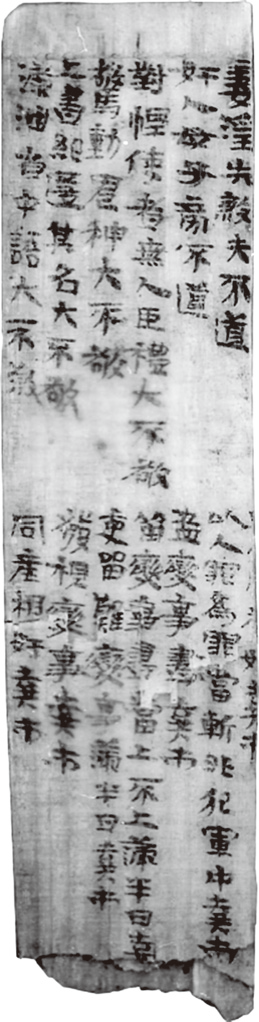 妻淫失煞夫不道
奸人母子旁不道
對悍使者無人臣禮大不敬
驚動鬼神大不敬
上書絕匿其名大不敬
漏泄省中語大不敬
奸棄市
以人罪為罪當斬非犯軍中棄市
盜變事書棄市
留變事書當上不上滿半日棄
吏留難變事滿半日棄市
發視變事棄市
同產相奸棄市